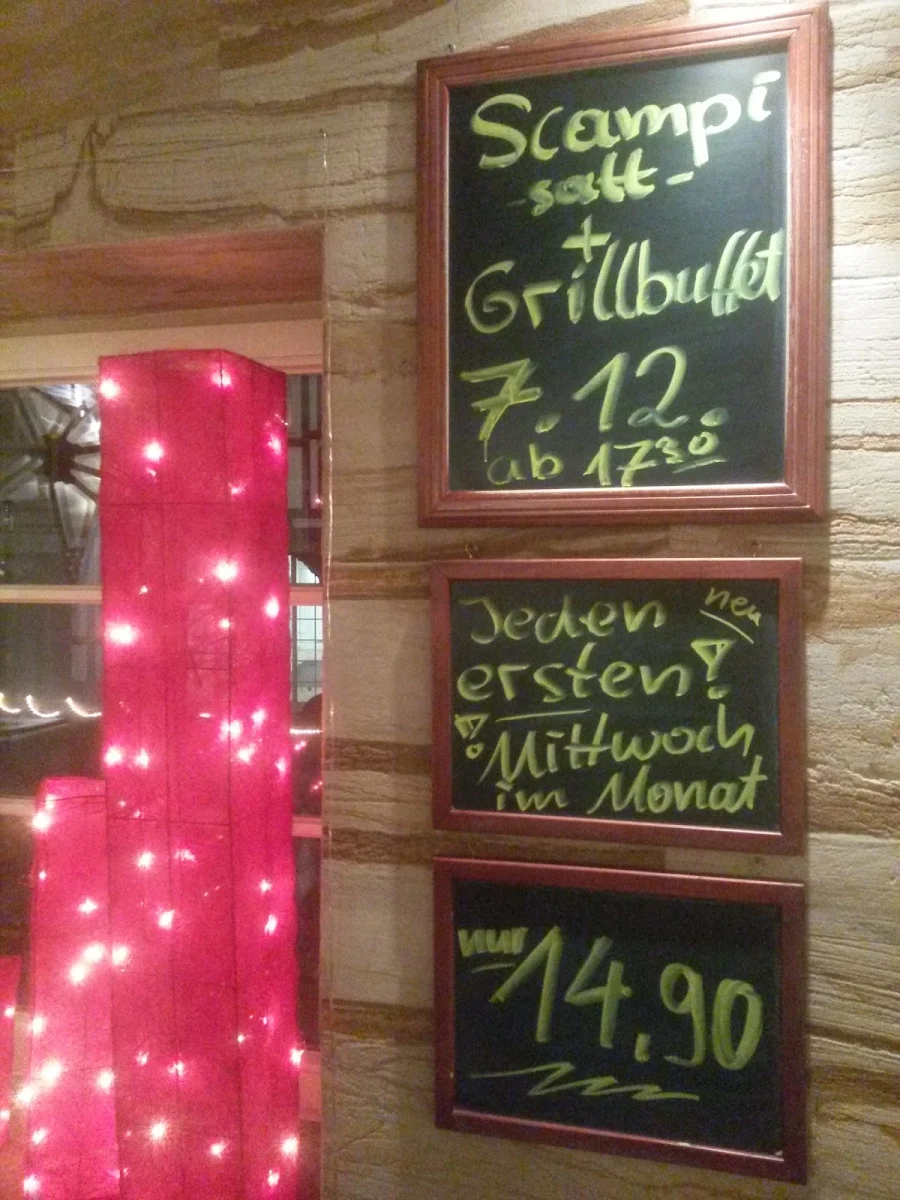 Scampi
-satt-
+
Grillbuffet
7.12.
ab 17³⁰
neu
Jeden
ersten!
!Mittwoch
im Monat
nur 14,90